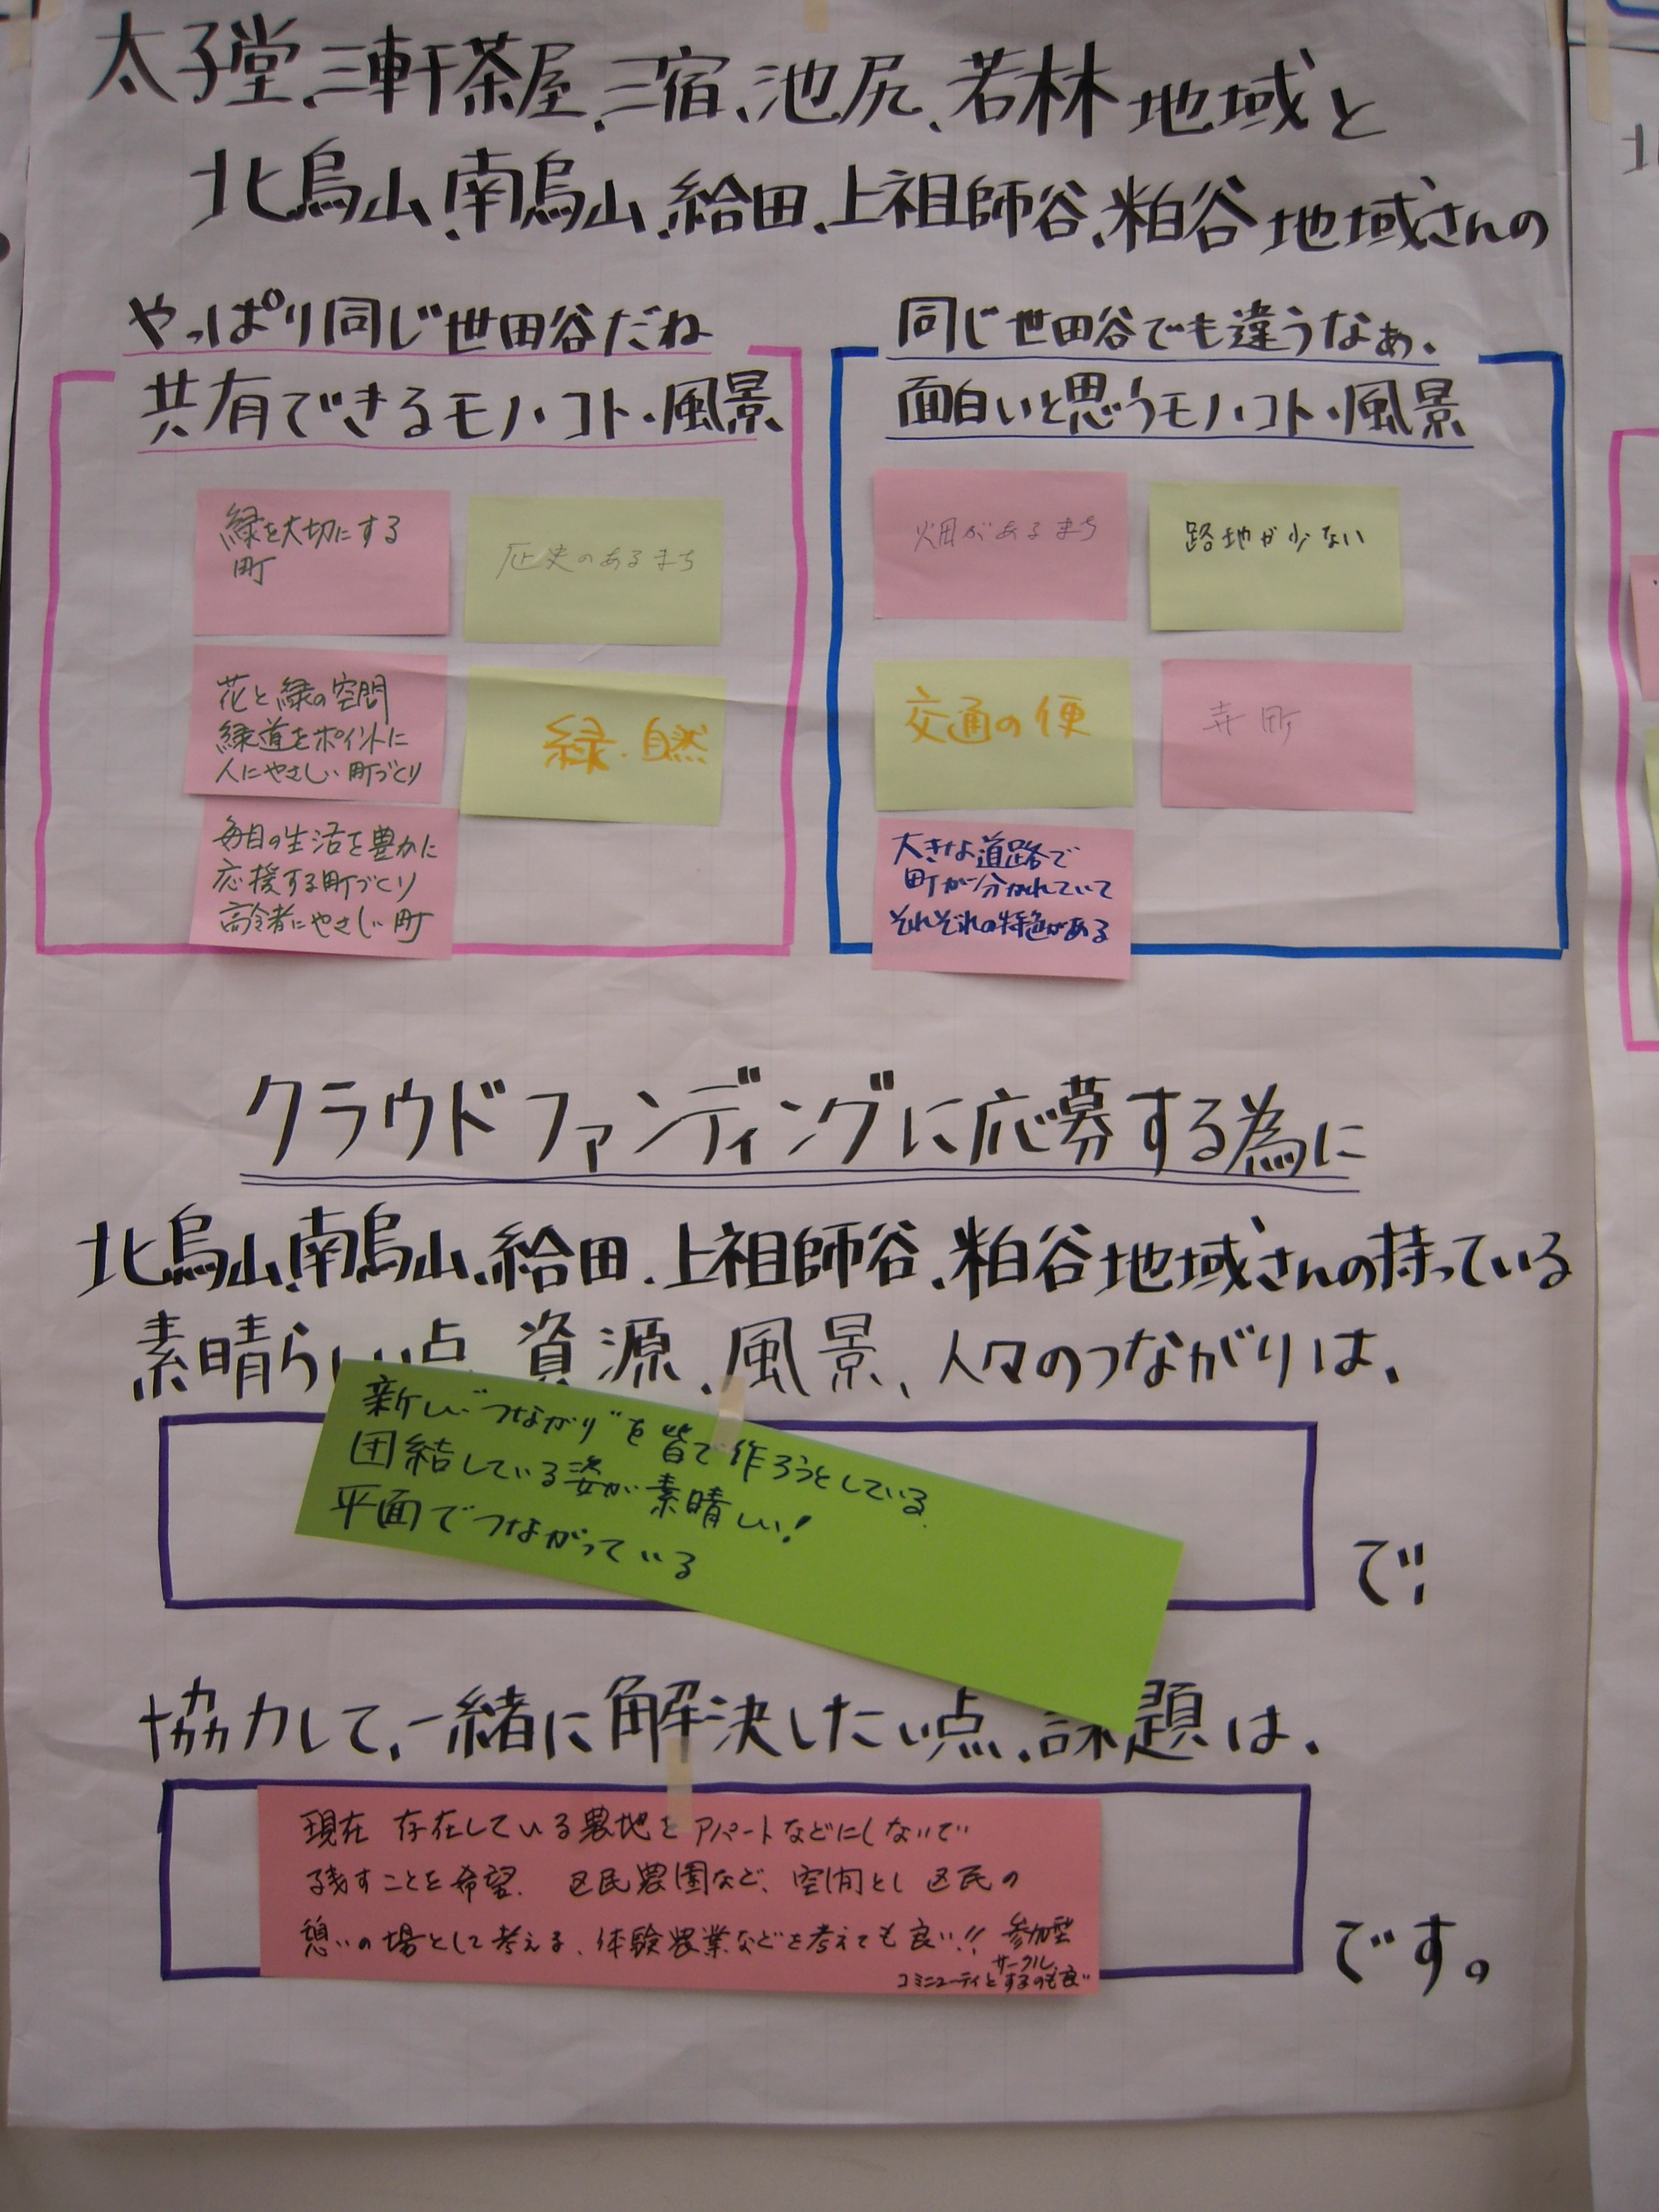 太子堂、三軒茶屋、三宿、池尻、若林地域と
北烏山、南烏山、給田、上祖師谷、粕谷地域さんの
やっぱり同じ世田谷だね
共有できるモノ・コト・風景
緑を大切にする
町
歴史のあるまち
花と緑の空間
緑道をポイントに
人にやさしい町づくり
緑・自然
毎日の生活を豊かに
応援する町づくり
高齢者にやさしい町
同じ世田谷でも違うなぁ、
面白いと思うモノ・コト・風景
畑があるまち
路地が少ない
交通の便
寺町
大きな道路で
町が分かれていて
それぞれの特色がある
クラウドファンディングに応募する為に
北烏山、南烏山、給田、上祖師谷、粕谷地域さんの持っている
素晴らしい点、資源、風景、人々のつながりは、
新しい"つながり"を皆で作ろうとしている。
団結している姿が素晴しい!
平面でつながっている
で、
協力して、一緒に解決したい点、課題は、
現在 存在している農地をアパートなどにしないで
残すことを希望. 区民農園など、空間とし 区民の
憩いの場として考える、体験農業などを考えても良い!! 参加型
サークル、
コミニューティとするのも良い
です。